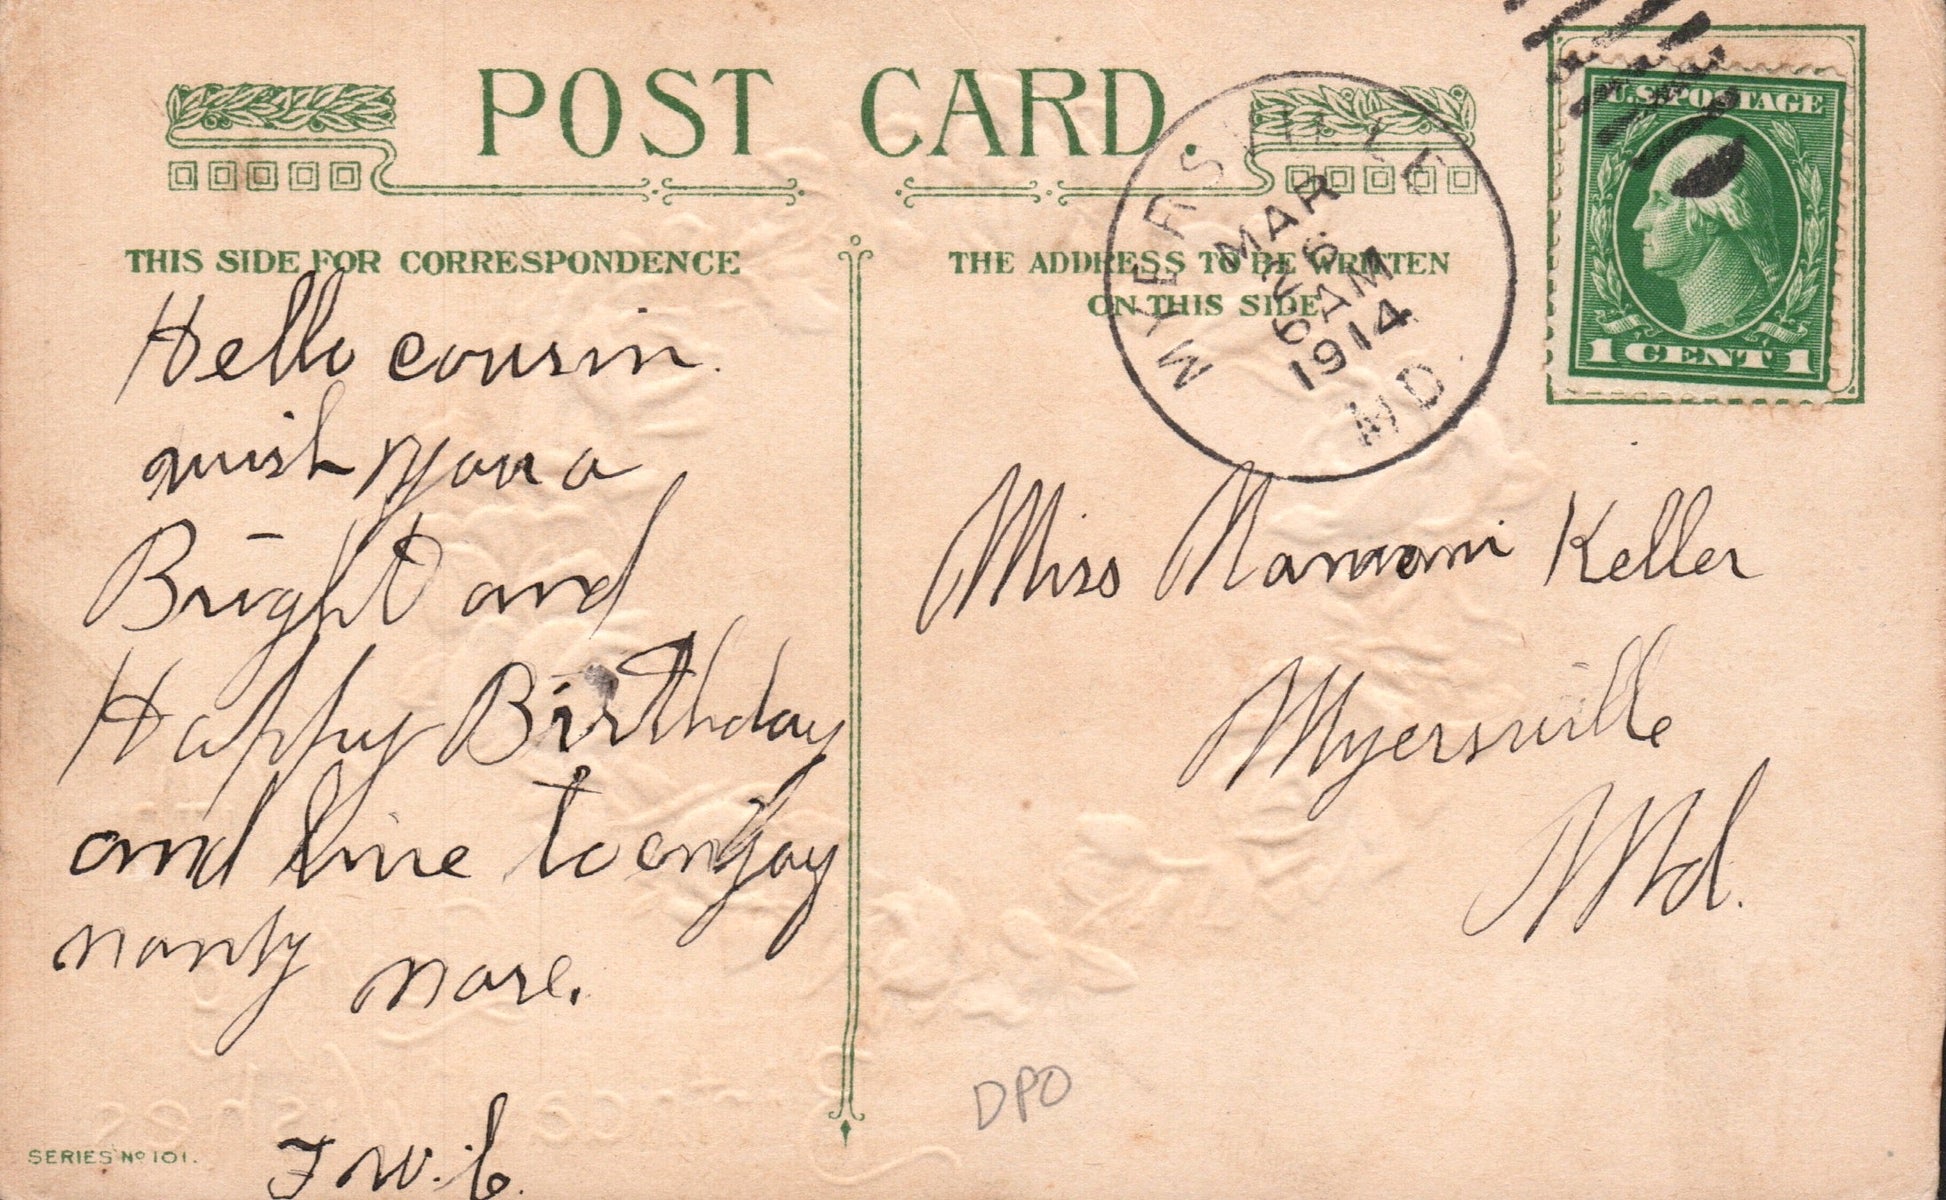 POST CARD.
THIS SIDE FOR CORRESPONDENCE
THE ADDRESS TO BE WRITTEN
ON THIS SIDE
MYERSVILLE
MAR
26
6 AM
1914
MD.
U.S. POSTAGE
1 CENT 1
Hello cousin.
wish you a
Bright and
Happy Birthday
and live to enjoy
manty more.
F W. C.
Miss Keller
Myersville
Md.
DPO
SERIES No 101.